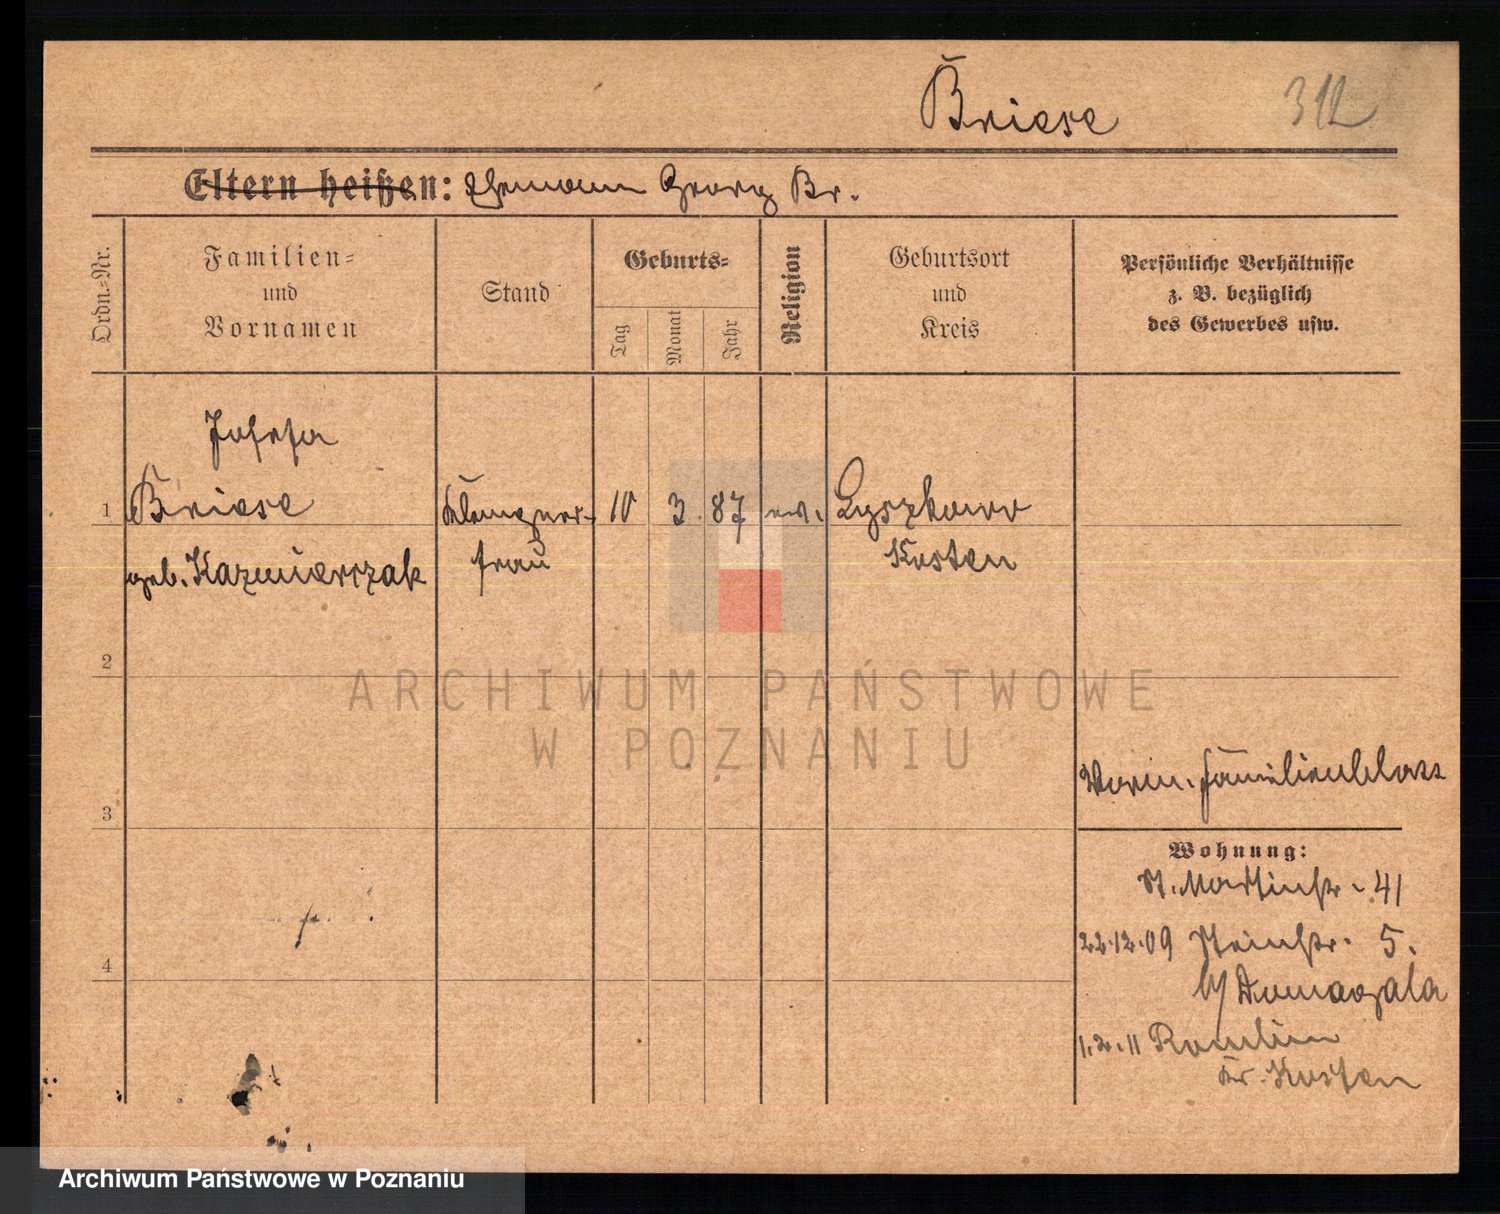 Briese
312
Eltern heißen: Ehemann Georg Br.
Ordn.-Nr.
Familien-
und
Vornamen
Stand
Geburts-
Tag
Monat
Jahr
Religion
Geburtsort
und
Kreis
Persönliche Verhältnisse
z. B. bezüglich
des Gewerbes usw.
Josefa
1 Briese Klempner- 10 3 87 Lyszkowo
geb. Kazmierczak frau Kosten
2
ARCHIWUM PAŃSTWOWE
W POZNANIU
Familienblatt
3
Wohnung:
St. Martinstr. 41
22.12.09 Steinstr. 5.
b/ Domagala
4
1.2.11
Kr. Kosten
Archiwum Państwowe w Poznaniu